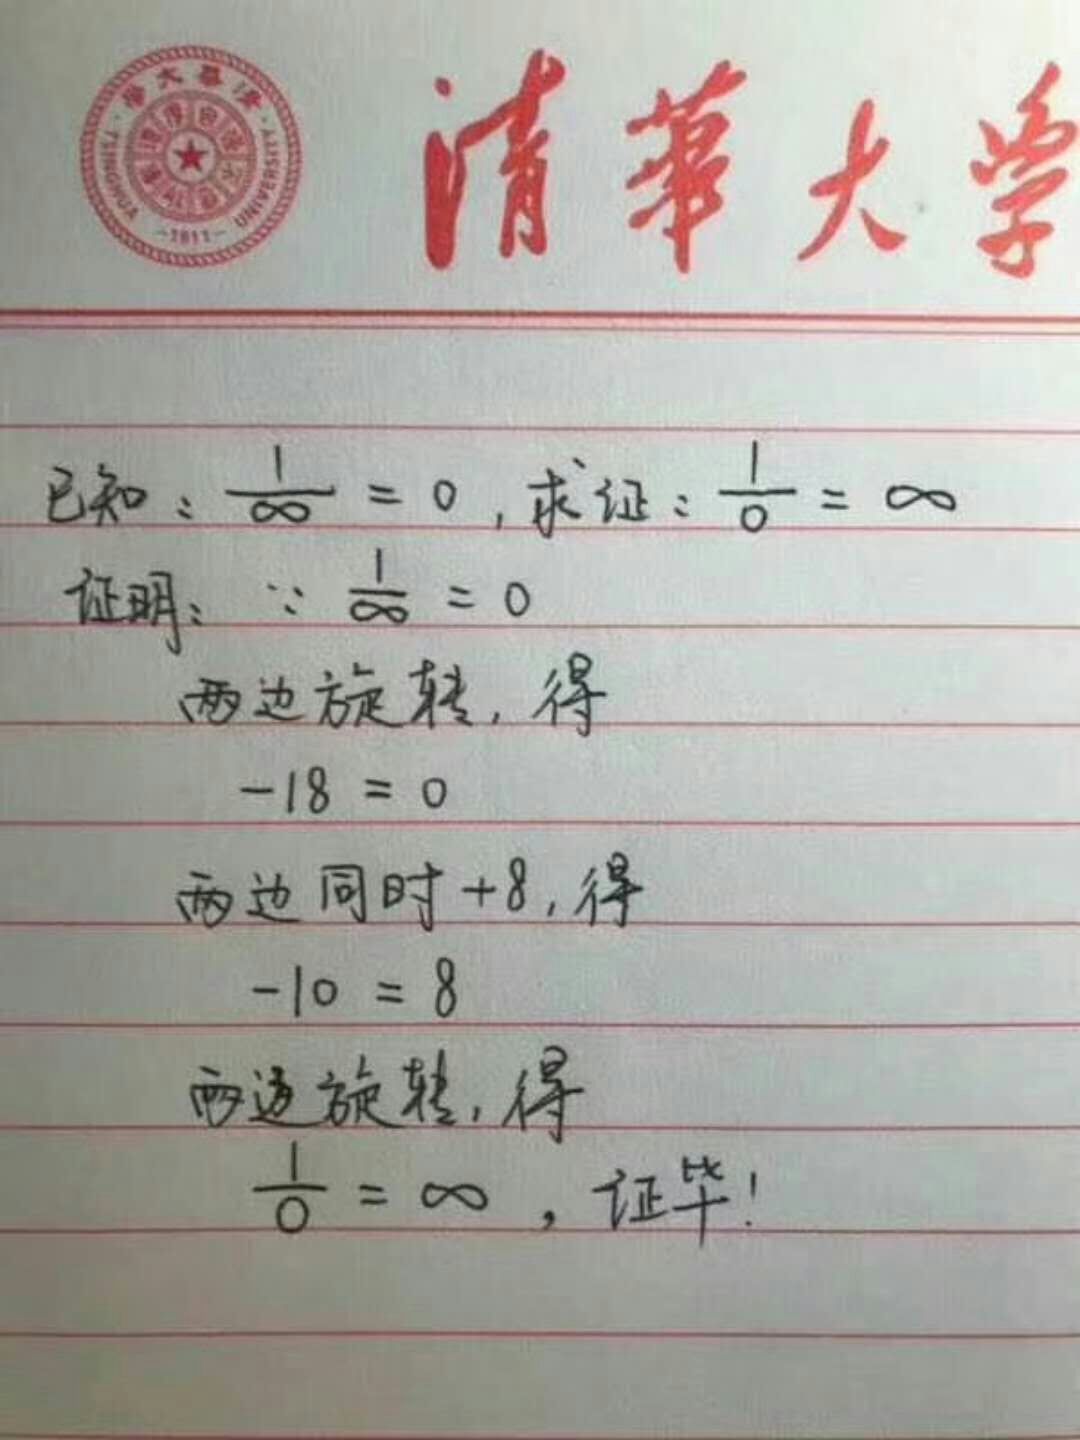 清華大学
TSINGHUA UNIVERSITY
-1911-
已知：1/∞ = 0，求证：1/0 = ∞
证明：∵ 1/∞ = 0
两边旋转，得
-18 = 0
两边同时+8，得
-10 = 8
两边旋转，得
1/0 = ∞，证毕！